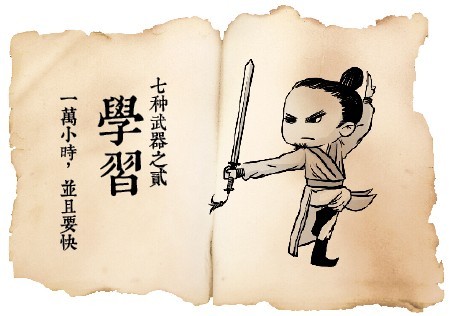 七种武器之貳
學習
一萬小時，並且要快